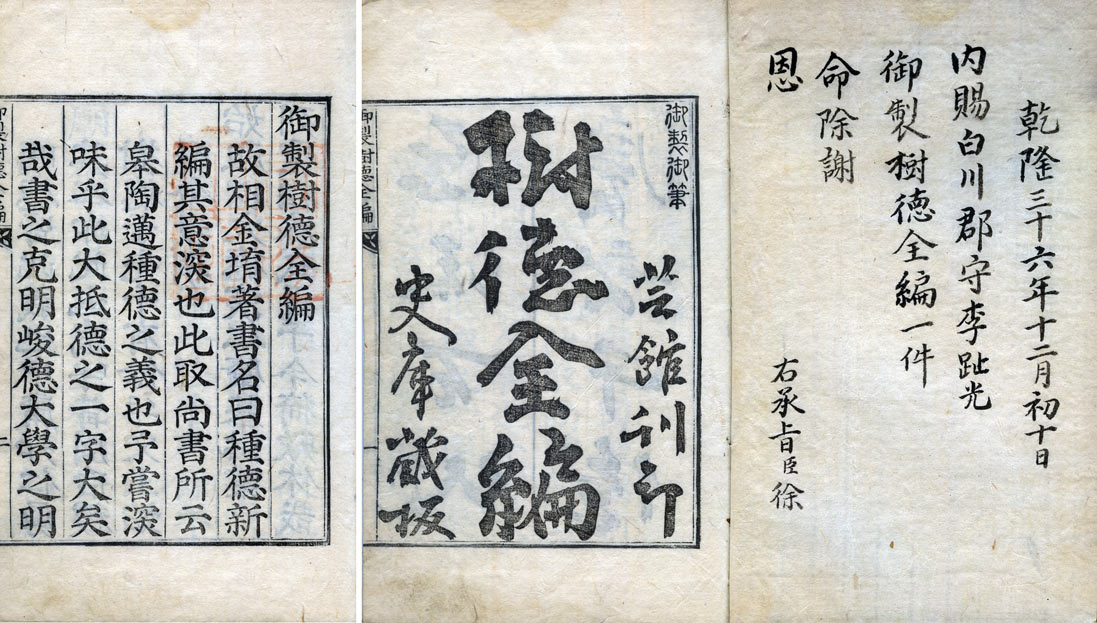 乾隆三十六年十二月初十日
內賜白川郡守李趾光
御製樹德全編一件
命除謝
恩
右承旨臣徐
御製御筆
芸館刊印
樹德全編
史庫藏板
御製樹德全編
御製樹德全編
故相金堉著書名曰種德新
編其意深也此取尙書所云
皋陶邁種德之義也予嘗深
味乎此大抵德之一字大矣
哉書之克明峻德大學之明